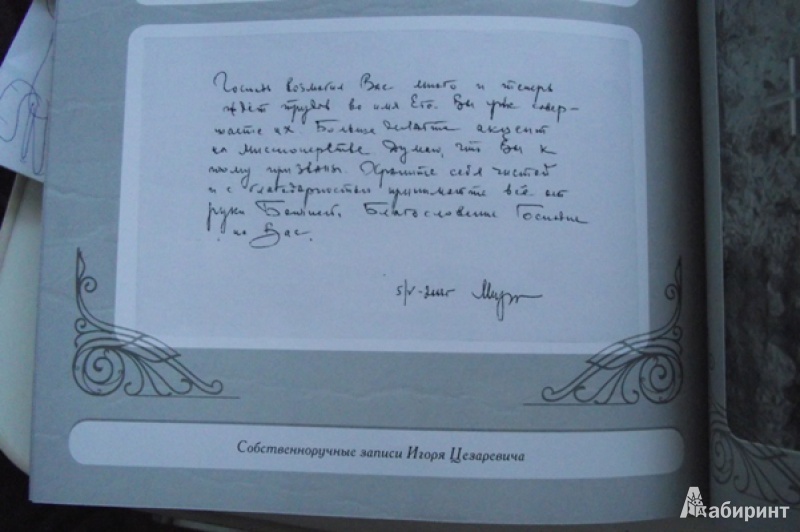 Господь возлюбил Вас много и теперь
ждёт трудов во имя Его. Вы уже совер-
шаете их. Больше делайте акцент
на миссионерстве думаю, что Вы к
тому призваны. Храните себя чистой
и с благодарностью принимайте всё от
руки Божией. Благословение Господне
на Вас.
5/V-2001г
Собственноручные записи Игоря Цезаревича
Лабиринт